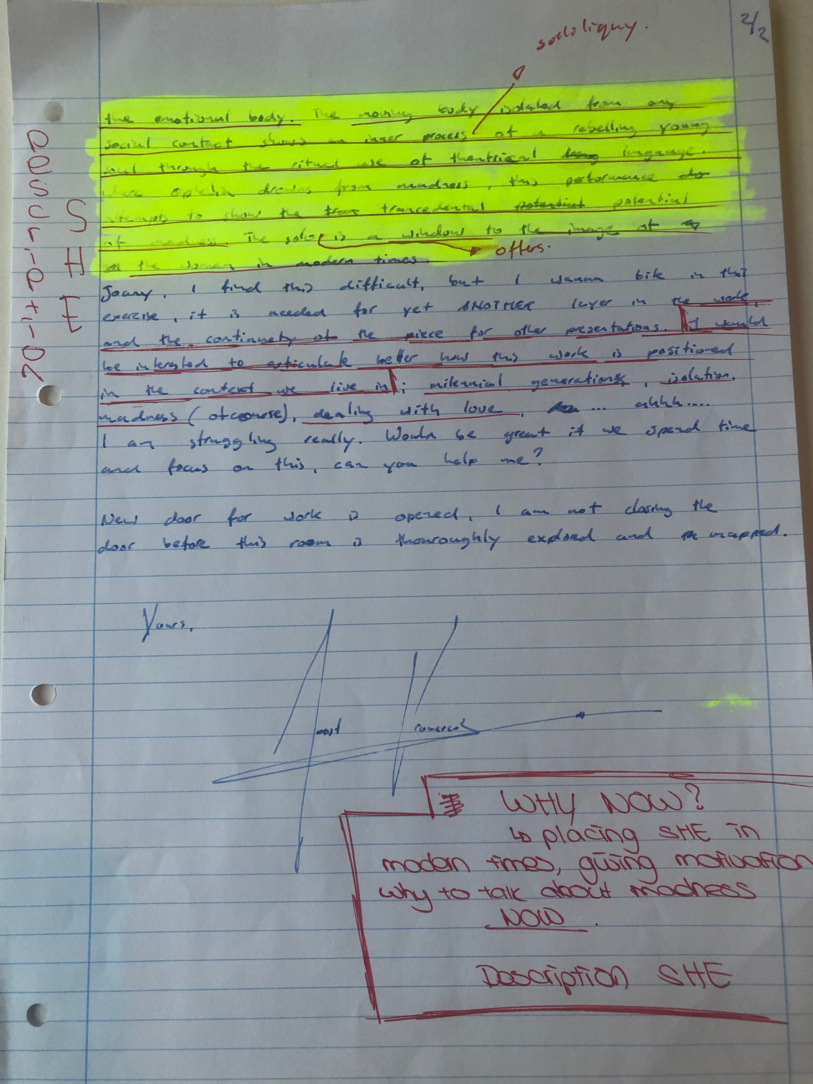 2/2
soliloquy.
the emotional body. The moving body isolated from any
social contact shows an inner process of a rebelling young
soul through the ritual use of theatrical language.
Where ophelia drowns from madness, this performance
attempts to show the trans trancedental potential potential
of madness. The solo is a window to the image of
the woman in modern times
offers.
DESCRIPTION
SHE
Joany, I find this difficult, but I wanna bite in this
exercise, it is needed for yet ANOTHER layer in the work,
and the continuety of the piece for other presentations. I would
be intersted to articulate better how this work is positioned
in the context we live in; milennial generations, isolation,
madness (ofcourse), dealing with love, ... ahhh....
I am struggling really. Would be great if we spend time
and focus on this, can you help me?
New door for work is opened, I am not closing the
door before this room is thouroughly explored and mapped.
Yours,
most
WHY NOW?
↳ placing SHE in
modern times, giving motivation
why to talk about madness
NOW.
Description SHE